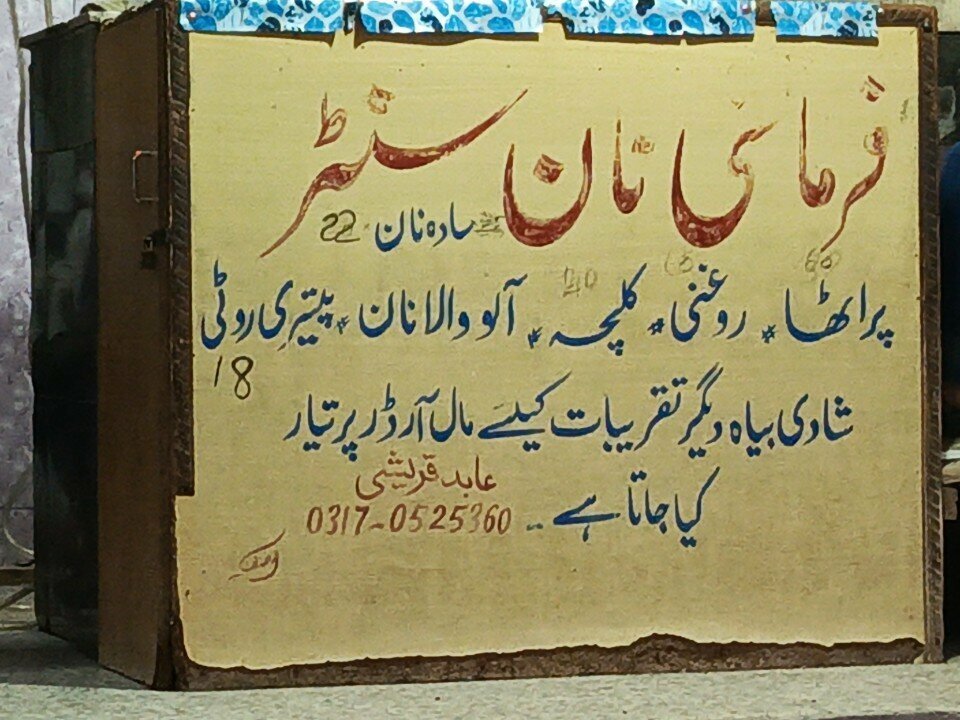 فرمائی نان سنٹر
سادہ نان 22
60 40
پراٹھا * روغنی * کلچہ * آلو والا نان * پیتری روٹی
18
شادی بیاہ دیگر تقریبات کیلئے مال آرڈر پر تیار
کیا جاتا ہے --
عابد قریشی
0317-0525360